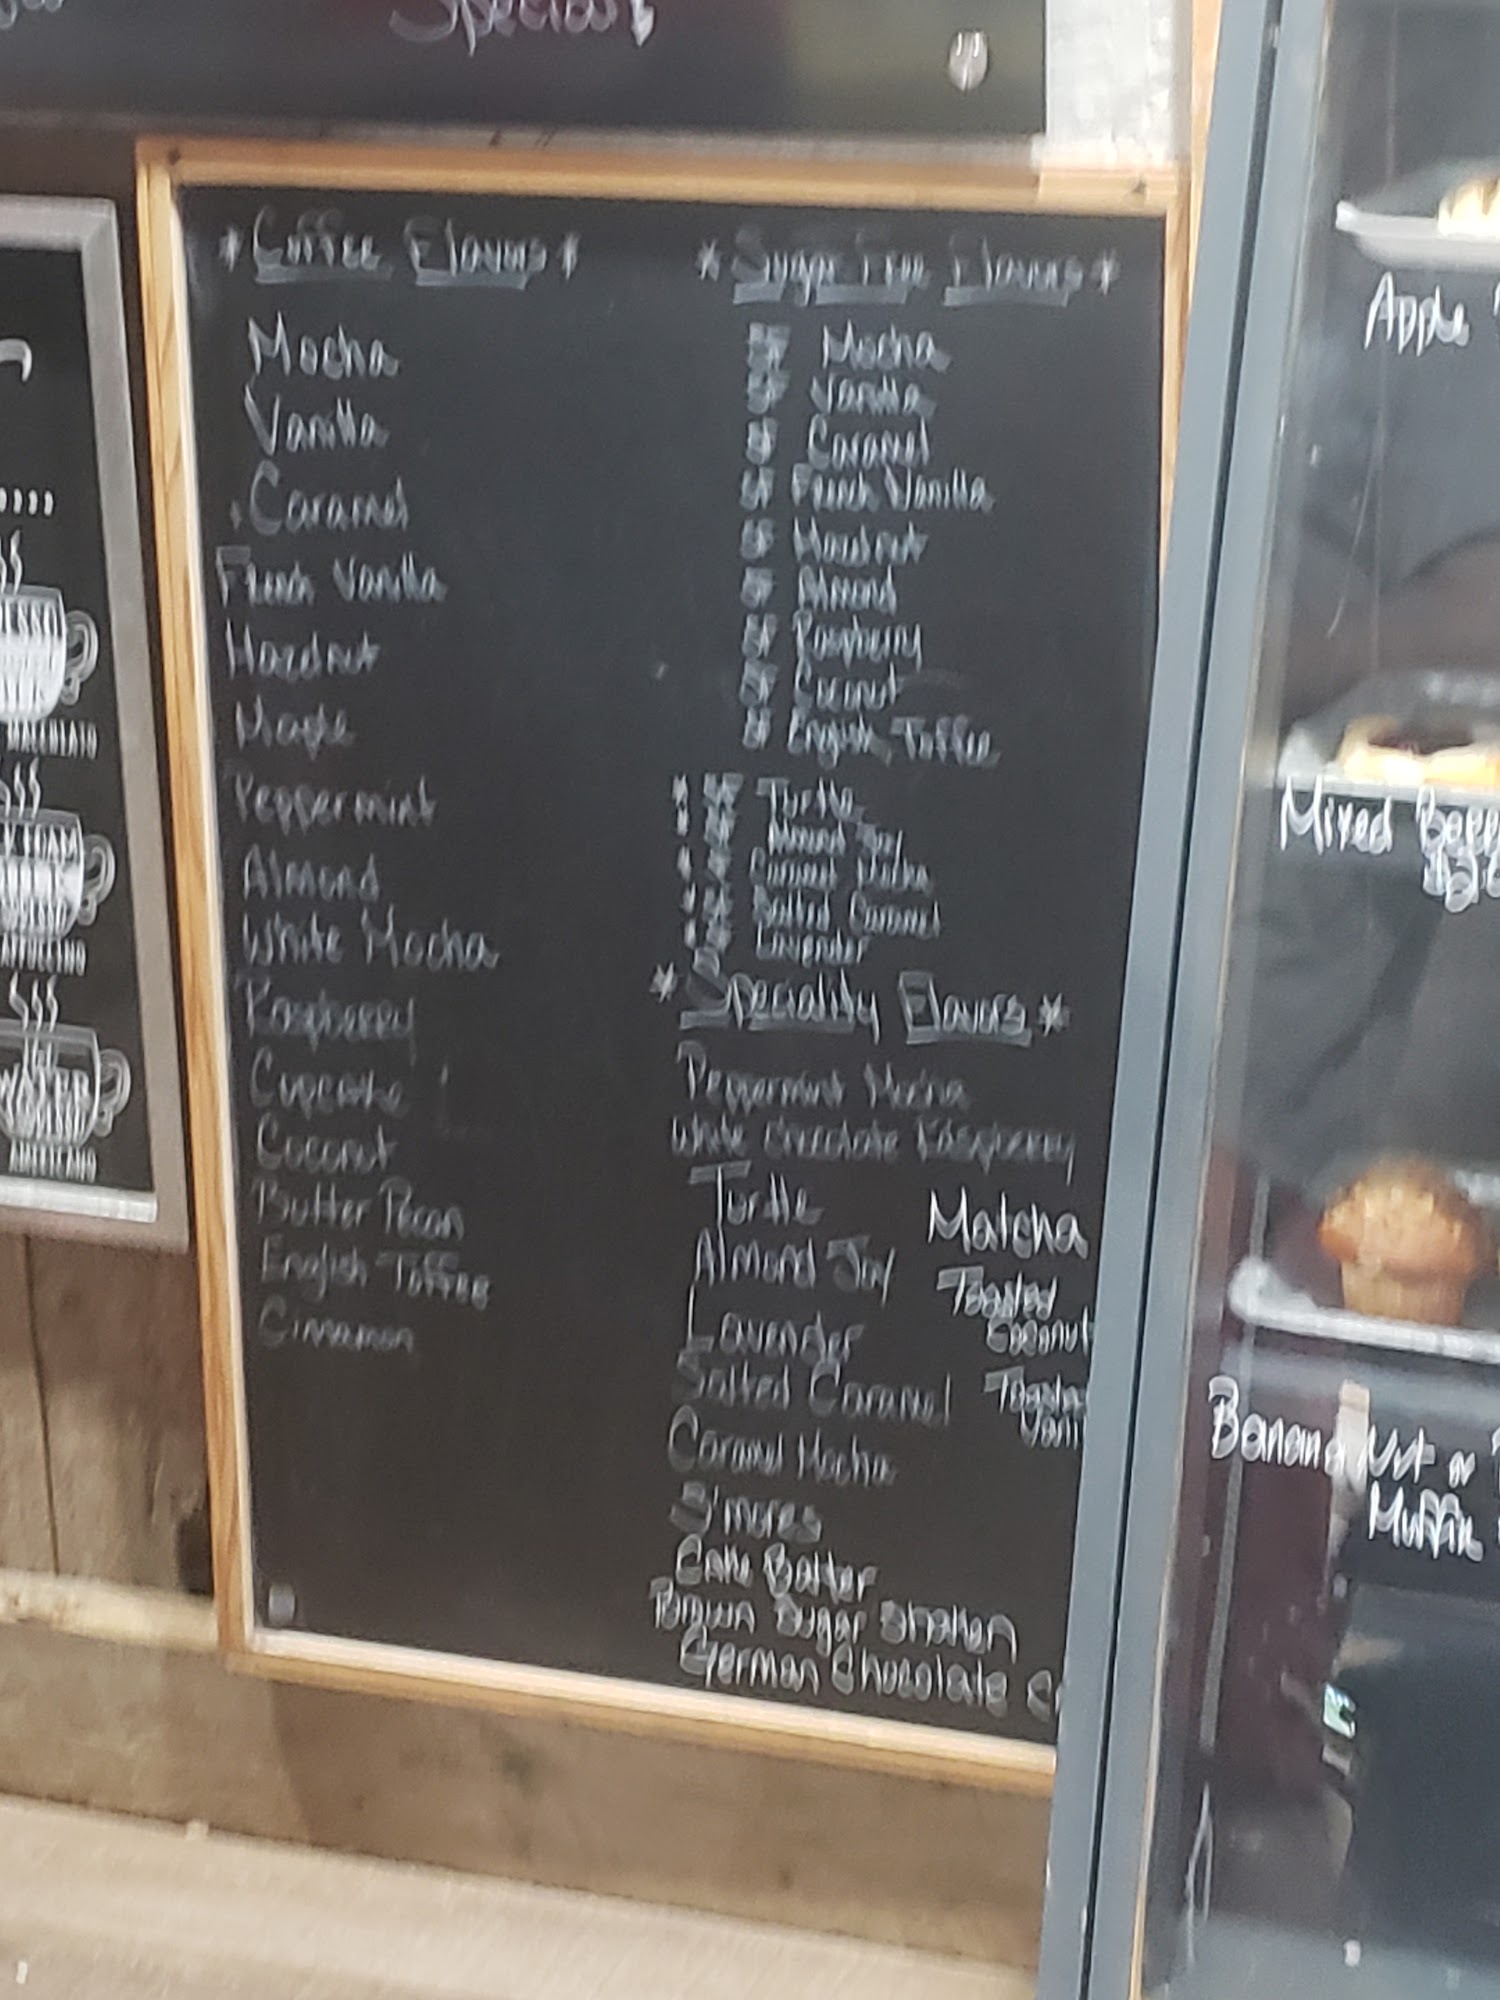 Specials
*Coffee Flavors*
Mocha
Vanilla
Caramel
French Vanilla
Hazelnut
Maple
Peppermint
Almond
White Mocha
Raspberry
Cupcake
Coconut
Butter Pecan
English Toffee
Cinnamon
*Sugar Free Flavors*
SF Mocha
SF Vanilla
SF Caramel
SF French Vanilla
SF Hazelnut
SF Almond
SF Raspberry
SF Coconut
SF English Toffee
* SF Turtle
* SF Almond Joy
* SF Caramel Mocha
* SF Salted Caramel
* SF Lavender
*Speciality Flavors*
Peppermint Mocha
White Chocolate Raspberry
Turtle
Almond Joy
Lavender
Salted Caramel
Caramel Mocha
S'mores
Cake Batter
Brown Sugar Shaken
German Chocolate
Matcha
Toasted
Coconut
Toasted
Vani
MACCHIATO
FOAM
CAPPUCCINO
WATER
ESPRESSO
AMERICANO
Apple
Mixed Berry
Banana Nut
Muffin